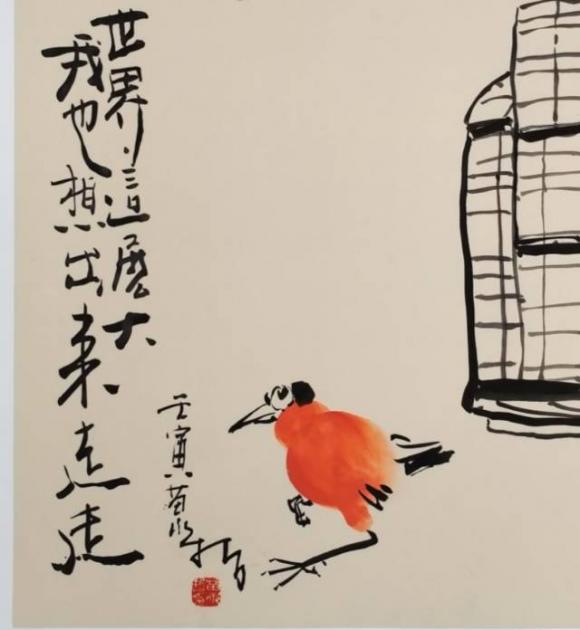 世界這麼大
我也想出來走走
壬寅黄永